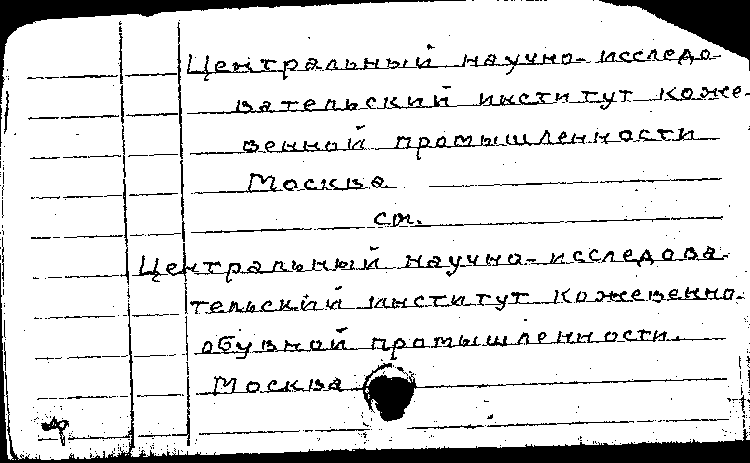 Центральный научно-исследо-
вательский институт коже-
венной промышленности
Москва
см.
Центральный научно-исследова-
тельский институт кожевенно-
обувной промышленности.
Москва